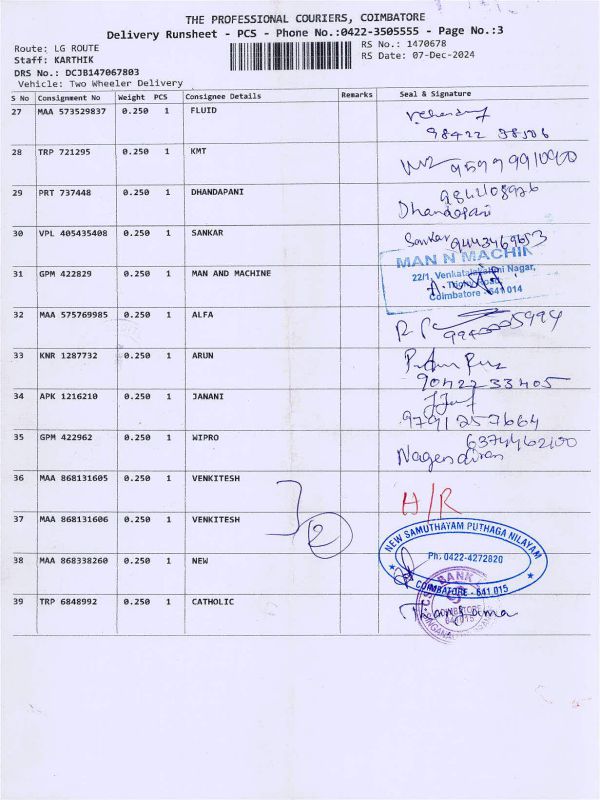 THE PROFESSIONAL COURIERS, COIMBATORE
Delivery Runsheet - PCS - Phone No.:0422-3505555 - Page No.:3
Route: LG ROUTE
RS No.: 1470678
Staff: KARTHIK
RS Date: 07-Dec-2024
DRS No.: DCJB147067803
Vehicle: Two Wheeler Delivery
S No Consignment No Weight PCS Consignee Details Remarks Seal & Signature
27 MAA 573529837 0.250 1 FLUID
28 TRP 721295 0.250 1 KMT
29 PRT 737448 0.250 1 DHANDAPANI
Dhandapani
30 VPL 405435408 0.250 1 SANKAR Sankar 9443469653
31 GPM 422829 0.250 1 MAN AND MACHINE
MAN N MACHIN
22/1, Venkatalakshmi Nagar,
Trichy Road,
Coimbatore - 641 014
32 MAA 575769985 0.250 1 ALFA
33 KNR 1287732 0.250 1 ARUN
9042233405
34 APK 1216210 0.250 1 JANANI
9791257664
35 GPM 422962 0.250 1 WIPRO
6374462100
Nagendiran
36 MAA 868131605 0.250 1 VENKITESH
H/R
37 MAA 868131606 0.250 1 VENKITESH
2
38 MAA 868338260 0.250 1 NEW
NEW SAMUTHAYAM PUTHAGA NILAYAM
Ph: 0422-4272820
COIMBATORE - 641 015
39 TRP 6848992 0.250 1 CATHOLIC
BANK
COIMBATORE
641015